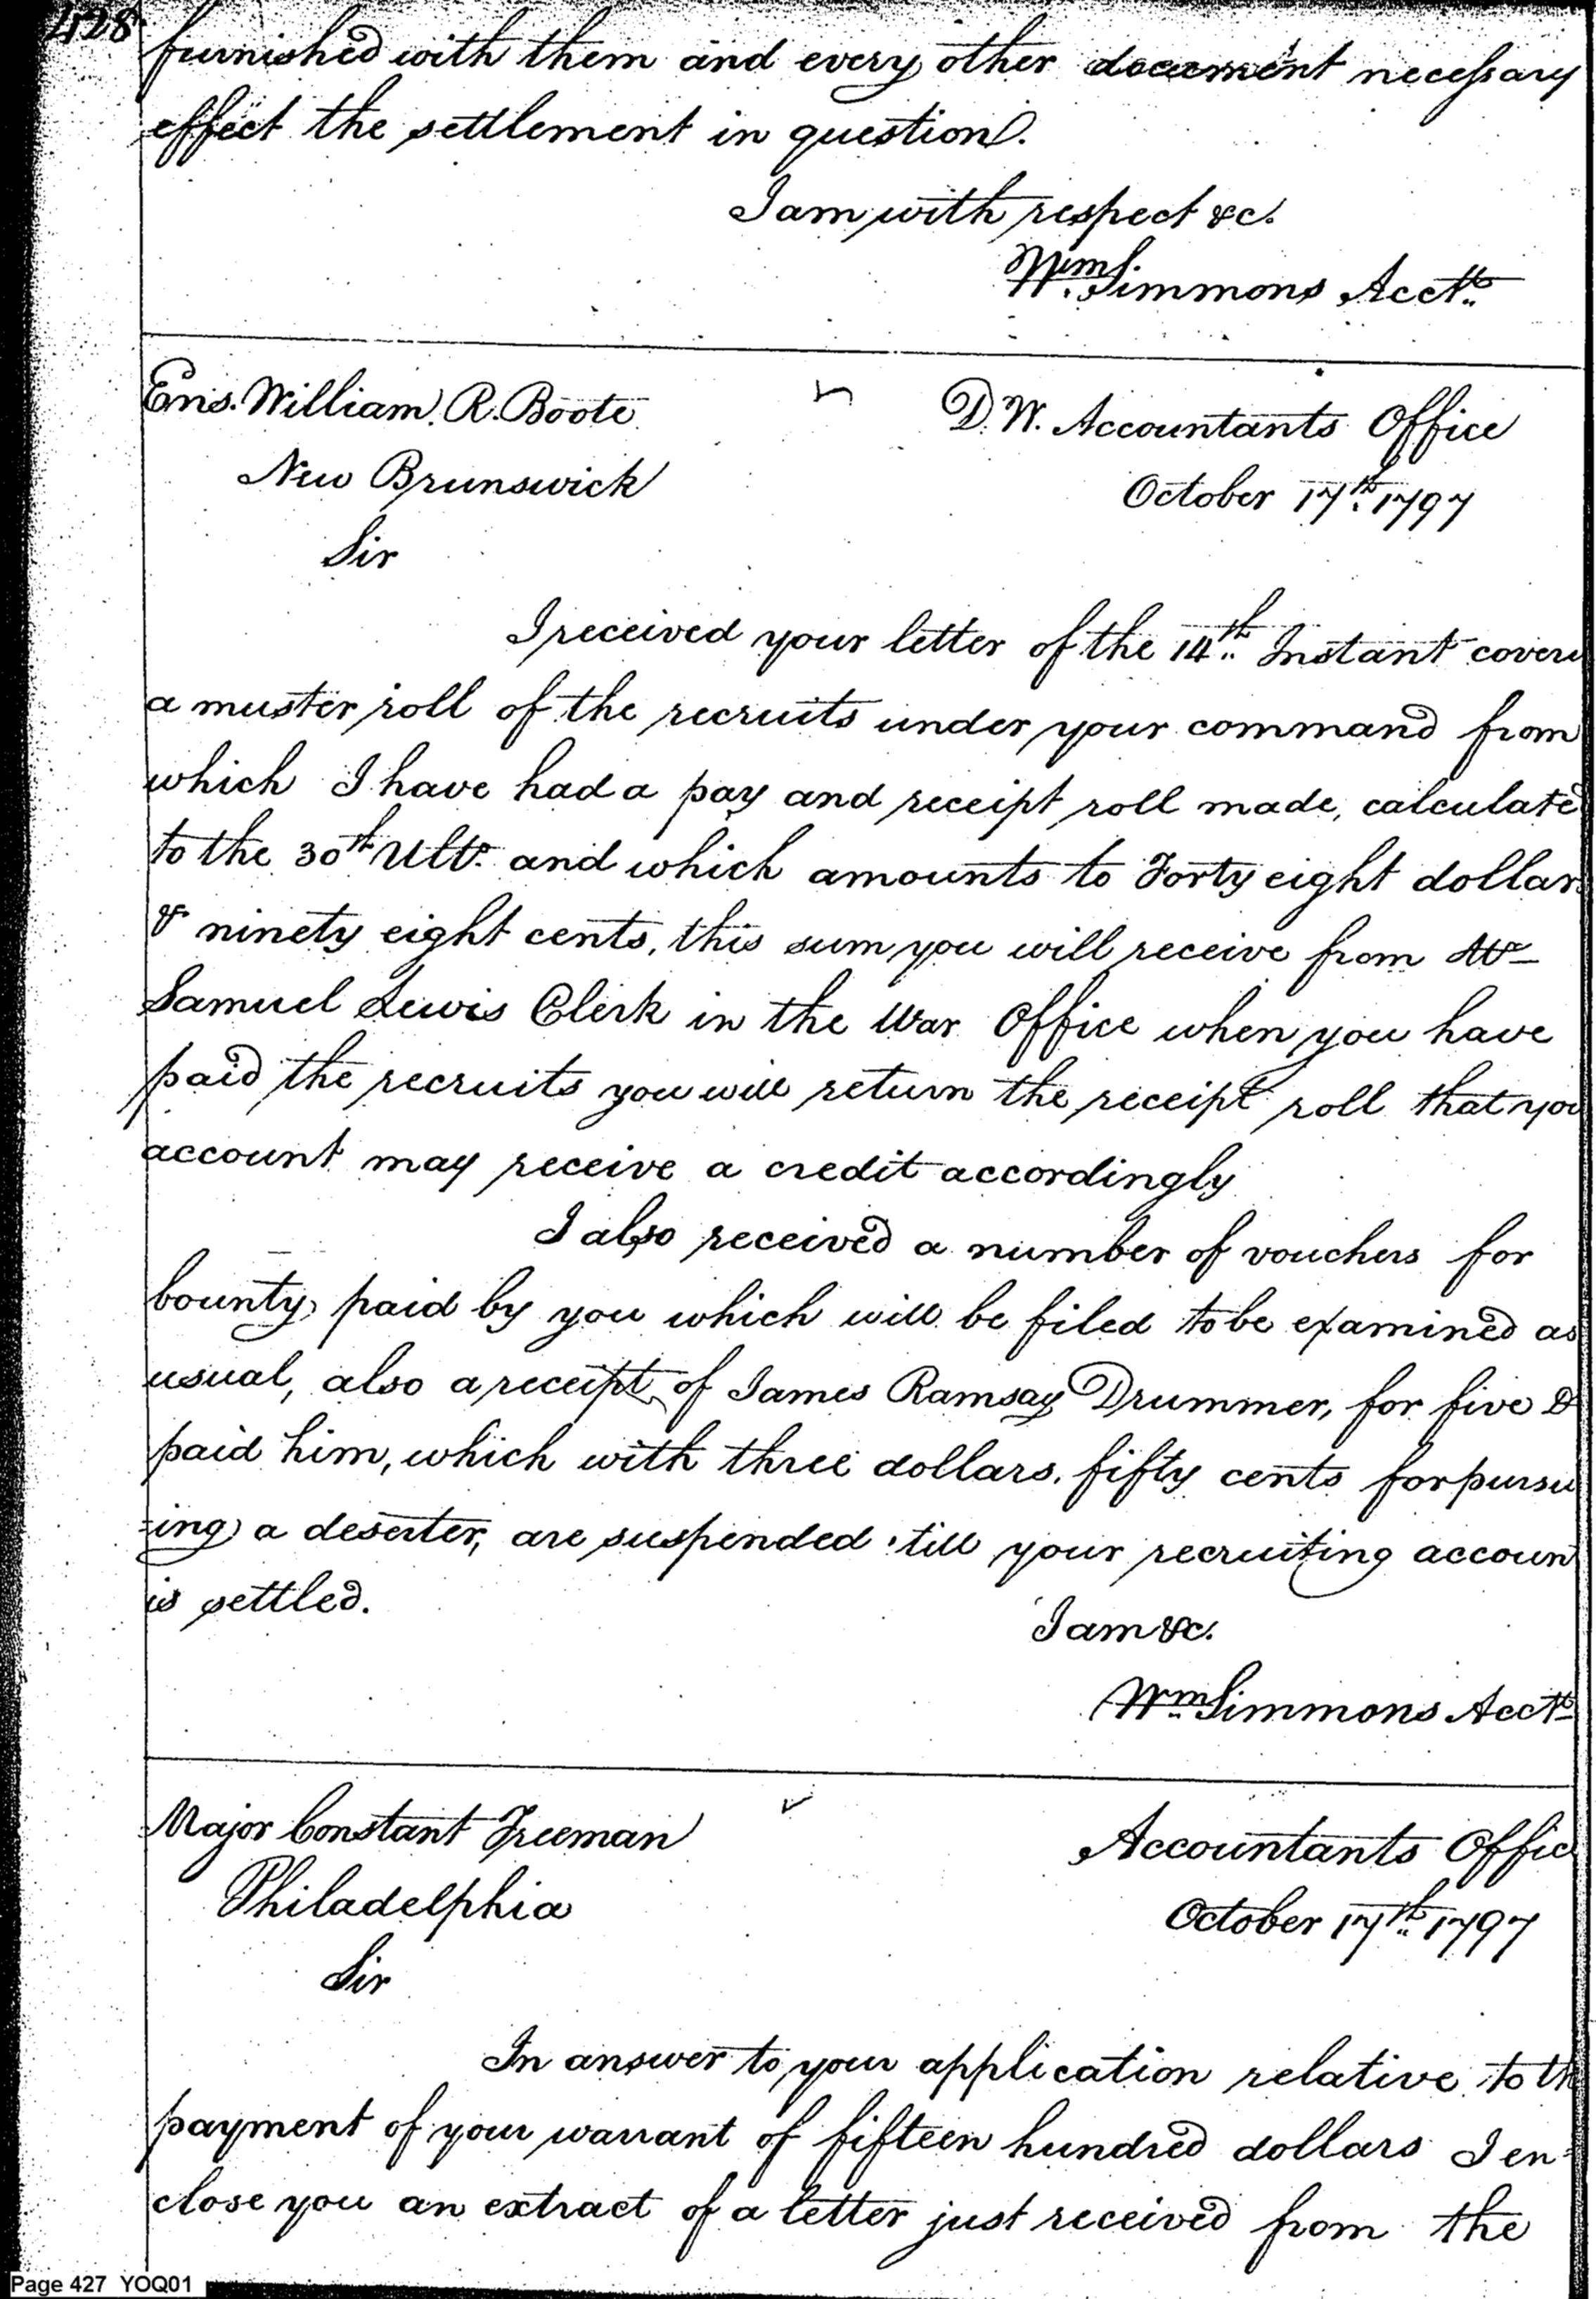 428
furnished with them and every other document necessary
effect the settlement in question.
I am with respect &c.
Wm. Simmons Acctt.
Ens. William R. Boote
D. W. Accountants Office
New Brunswick
October 17th. 1797
Sir
I received your letter of the 14th. Instant coveri
a muster roll of the recruits under your command from
which I have had a pay and receipt roll made, calculated
to the 30th Ulto. and which amounts to Forty eight dollars
& ninety eight cents, this sum you will receive from Mr
Samuel Lewis Clerk in the War Office when you have
paid the recruits you will return the receipt roll that you
account may receive a credit accordingly
I also received a number of vouchers for
bounty, paid by you which will be filed to be examined as
usual, also a receipt, of James Ramsay Drummer, for five D
paid him, which with three dollars. fifty cents for pursu
=ing a deserter, are suspended 'till your recruiting accoun
is settled.
I am &c.
Wm Simmons Acctt
Major Constant Freeman
Accountants Offic
Philadelphia
October 17th. 1797
Sir
In answer to your application relative to th
payment of your warrant of fifteen hundred dollars I en=
close you an extract of a letter just received from the
Page 427 YOQ01